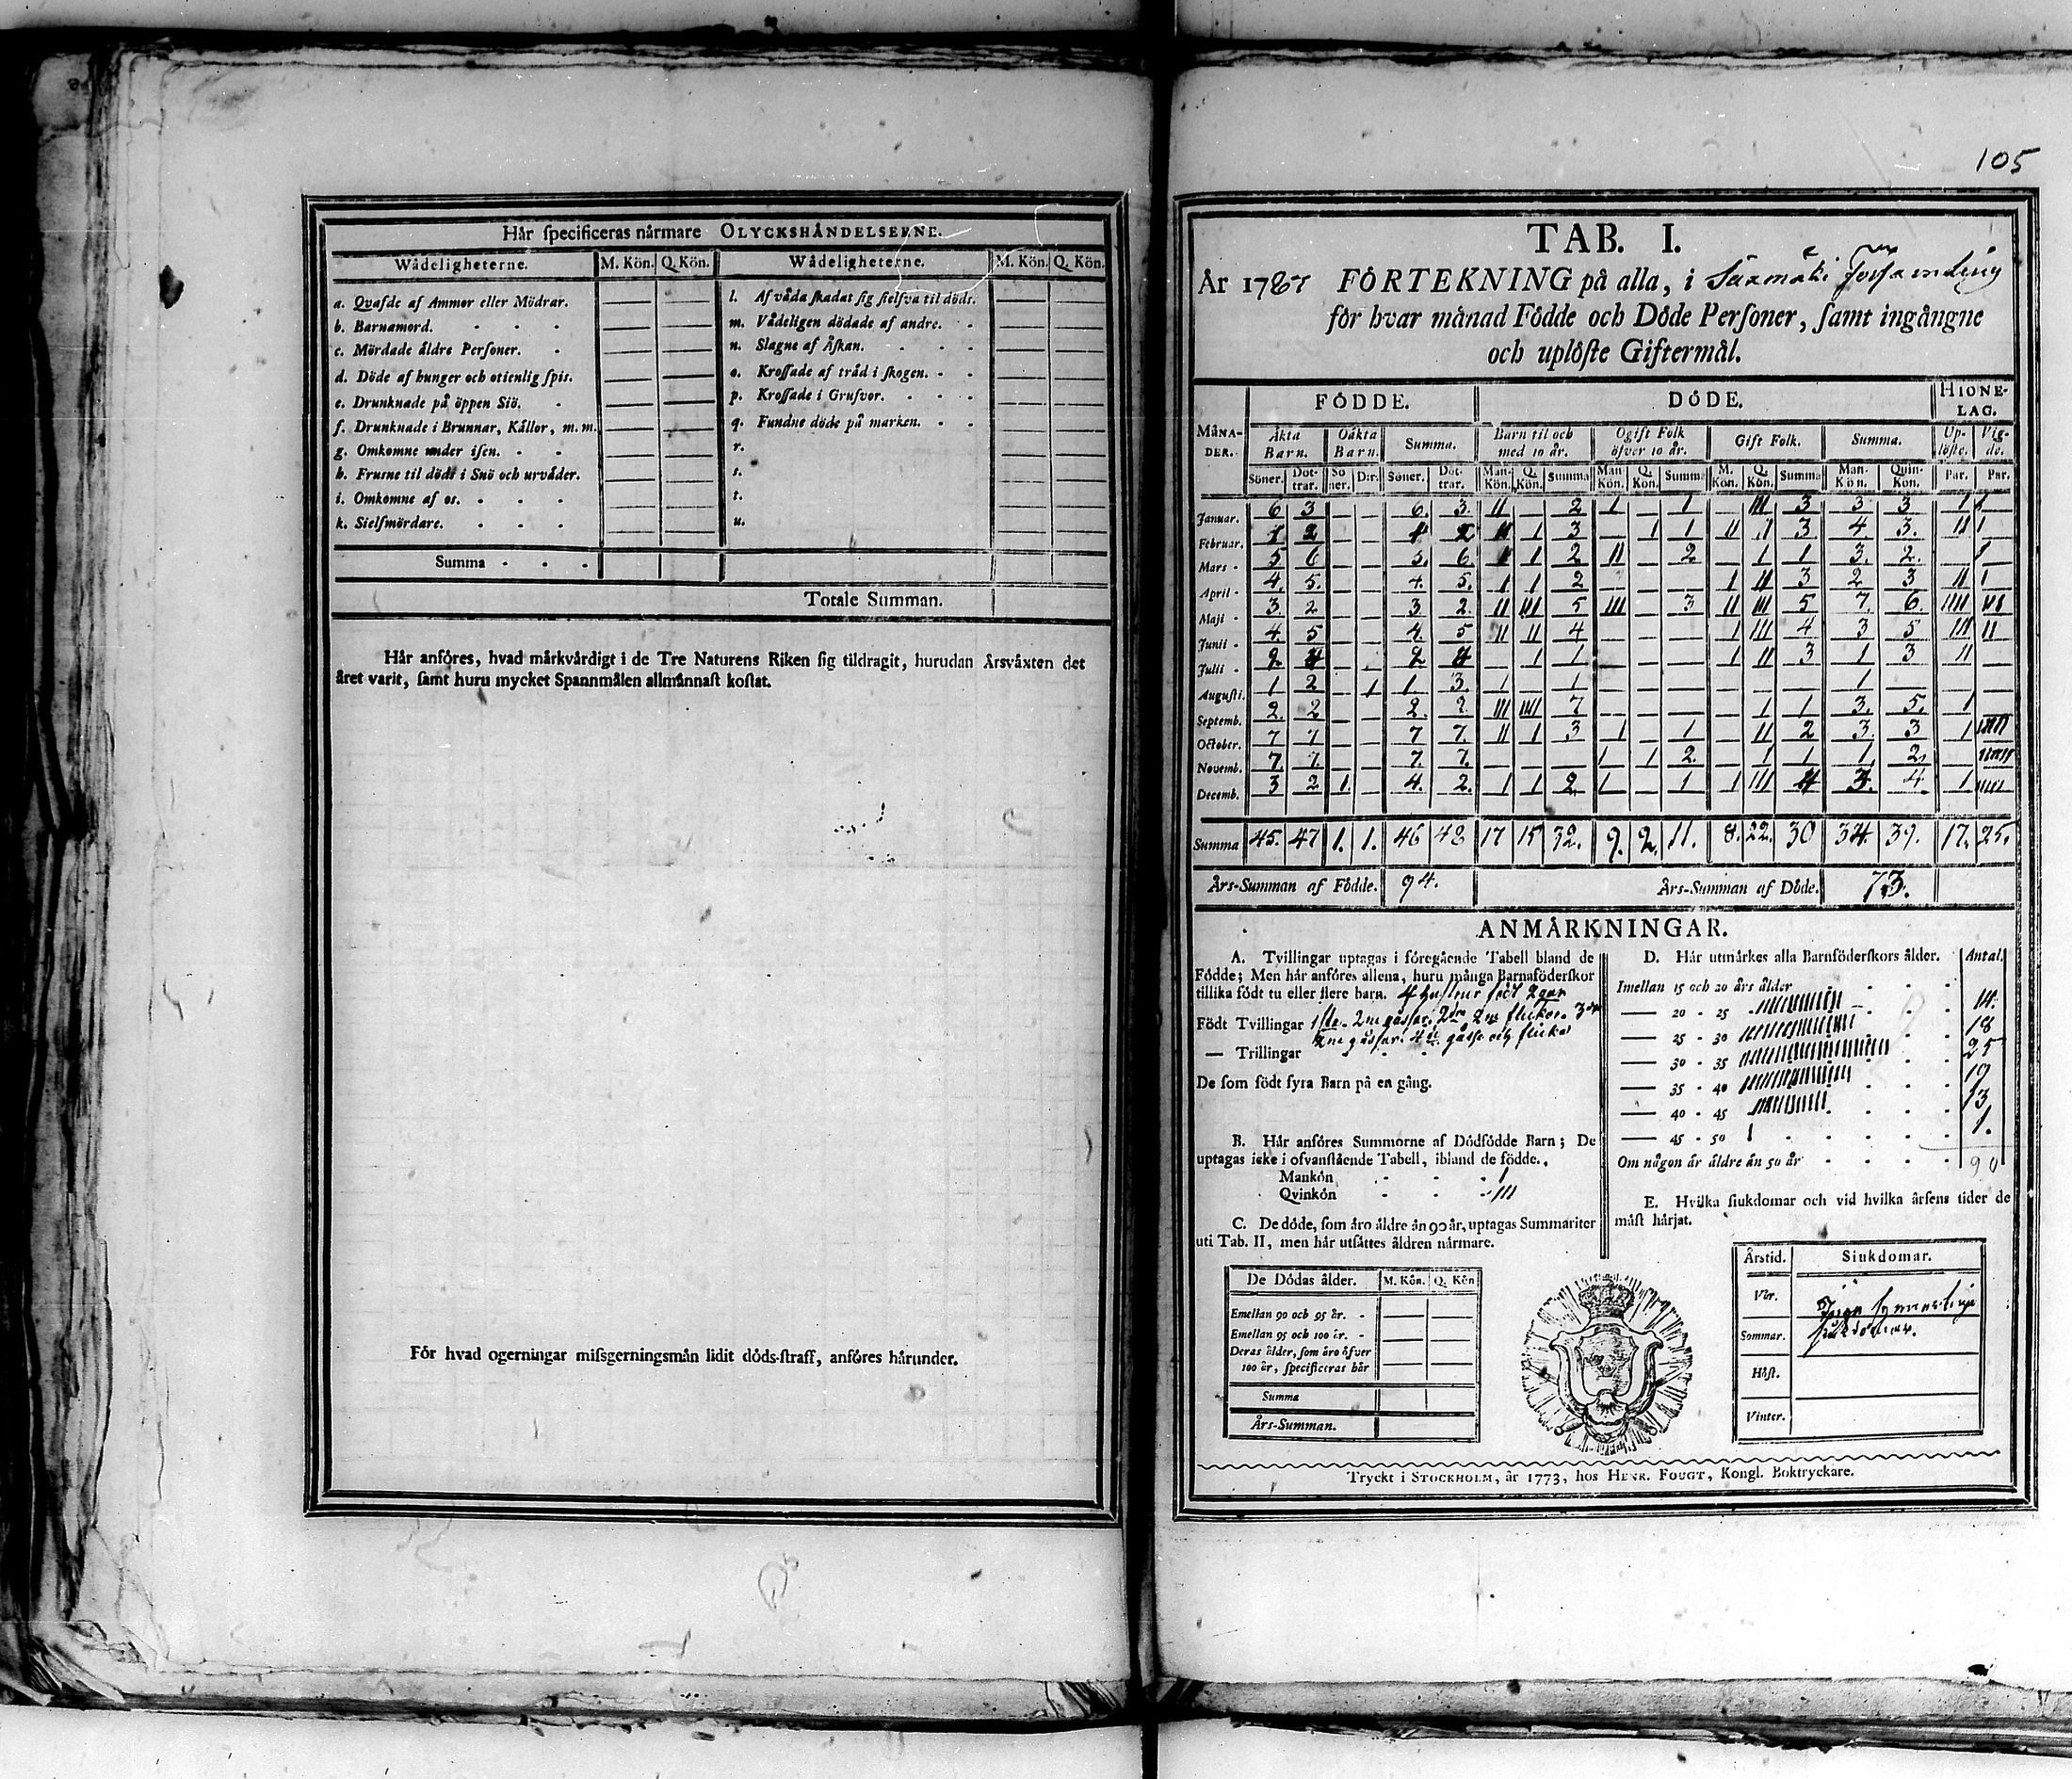 Hår specificeras nårmare OLYCKSHÅNDELSERNE.
Wådeligheterne. M. Kön. Q. Kön. Wådeligheterne. M. Kön. Q. Kön.
a. Qvafde af Ammor eller Mödrar. — — l. Af våda skadat sig sielfva til döds. — —
b. Barnamord. — — m. Vådeligen dödade af andre. — —
c. Mördade åldre Personer. — — n. Slagne af Åskan. — —
d. Döde af hunger och otienlig spis. — — o. Krossade af tråd i skogen. — —
e. Drunknade på öppen Siö. — — p. Krossade i Grufvor. — —
f. Drunknade i Brunnar, Kållor, m. m. — — q. Fundne döde på marken. — —
g. Omkomne under isen. — — r. — —
h. Frusne til döds i Snö och urvåder. — — s. — —
i. Omkomne af os. — — t. — —
k. Sielfmördare. — — u. — —
Summa
Totale Summan.
Hår anföres, hvad mårkvårdigt i de Tre Naturens Riken sig tildragit, hurudan Årsvåxten det
året varit, samt huru mycket Spannmålen allmånnast kostat.
För hvad ogerningar missgerningsmån lidit döds-straff, anföres hårunder.
105
TAB. I.
År 1787 FÖRTEKNING på alla, i Säxmäki Församling
för hvar månad Födde och Döde Personer, samt ingångne
och uplöste Giftermål.
MÅNADER. FÖDDE. DÖDE. HIONELAG.
Åkta Barn. Oåkta Barn. Summa. Barn til och med 10 år. Ogift Folk öfver 10 år. Gift Folk. Summa. Uplöste. Vigde.
Söner. Dottrar. Söner. D:r. Söner. Dottrar. Man-Kön. Q. Kön. Summa Man Kön. Q. Kön. Summa M. Kön. Q. Kön. Summa Man-Kön. Quin-Kön. Par. Par.
Januar. 6 3 — — 6. 3. II — 2 1 — 1 — III 3 3 3 1 1
Februar. 1 2 — — 1 3 — 1 1 II 1 3 4. 3. II 1
Mars 5 6 — — 5. 6. 1 2 II — 2 — 1 1 3. 2.
April 4. 5. — — 4. 5. 1 1 2 1 II 3 2 3 II 1
Maji 3. 2 — — 3 2. II III 5 III — 3 II III 5 7. 6. IIII
Junii 4. 5 — — 4. 5 II II 4 — — — 1 III 4 3 5 III II
Julii 2 4 — — 2 4 — 1 1 — — — 1 II 3 1 3 II —
Augusti. 1 2 — 1 1. 3. 1 — 1 — — — — — — 1 — — —
Septemb. 2. 2 — — 2. 2. III IIII 7 — — — — 1 1 3. 5. 1 —
October. 7 7 — — 7 7. II 1 3 1 — 1 — II 2 3 3 1
Novemb. 7. 7. — — 7. 7. — — — 1 1 2. — 1 1 1 2. —
Decemb. 3 2 1. — 4. 2. 1 1 2. 1 — 1 1 III 4 3. 4. 1
Summa 45. 47 1. 1. 46 48 17 15 32. 9. 2. 11. 8. 22. 30 34. 39. 17. 25.
Års-Summan af Födde. 94. Års-Summan af Döde. 73.
ANMÅRKNINGAR.
A. Tvillingar uptagas i föregående Tabell bland de
Födde; Men hår anföres allena, huru många Barnaföderskor
tillika födt tu eller flere barn. 4 hustrur födt 2ggr
Födt Tvillingar 1sta. 2ne gåssar. 2dra 2ne flickor. 3dje
2ne gåssar. 4de gåsse och flicka
— Trillingar
De som födt fyra Barn på en gång.
B. Hår anföres Summorne af Dödfödde Barn; De
uptagas icke i ofvanstående Tabell, ibland de födde.
Mankön 1
Qvinkön III
C. De döde, som åro åldre ån 90 år, uptagas Summariter
uti Tab. II, men hår utsåttes åldren nårmare.
De Dödas ålder. M. Kön. Q. Kön
Emellan 90 och 95 år. — —
Emellan 95 och 100 år. — —
Deras ålder, som åro öfver
100 år, specificeras hår
Summa
Års-Summan.
D. Hår utmårkes alla Barnföderskors ålder. Antal.
Imellan 15 och 20 års ålder
— 20 - 25 14.
— 25 - 30 18
— 30 - 35 25
— 35 - 40 19
— 40 - 45 13
— 45 - 50 1.
Om någon är åldre ån 50 år
90
E. Hvilka siukdomar och vid hvilka årsens tider de
måst hårjat.
Årstid. Siukdomar.
Vår. Inga
Sommar. siukdomar.
Höst.
Vinter.
Tryckt i STOCKHOLM, år 1773, hos HENR. FOUGT, Kongl. Boktryckare.